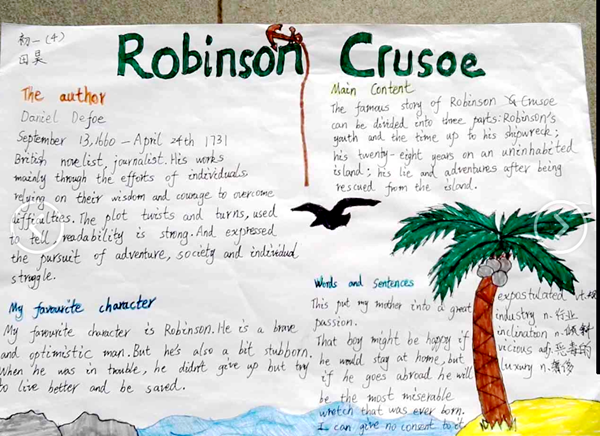 初一(4)
田昊
Robinson Crusoe
The author
Daniel Defoe
September 13,1660 – April 24th 1731
British novelist, journalist. His works
mainly through the efforts of individuals
relying on their wisdom and courage to overcome
difficulties. The plot twists and turns, used
to tell, readability is strong. And expressed
the pursuit of adventure, society and individual
struggle.
My favourite character
My favourite character is Robinson. He is a brave
and optimistic man. But he's also a bit stubborn.
When he was in trouble, he didn't give up but try
to live better and be saved.
Main Content
The famous story of Robinson Crusoe
can be divided into three parts: Robinson's
youth and the time up to his shipwreck;
his twenty-eight years on an uninhabited
island; his lie and adventures after being
rescued from the island.
Words and Sentences
This put my mother into a great
passion.
That boy might be happy if
he would stay at home, but
if he goes abroad he will
be the most miserable
wretch that was ever born.
I can give no consent to it
expostulated vt.
industry n. 行业
inclination n. 倾斜
vicious adj. 恶毒的
luxury n. 奢侈